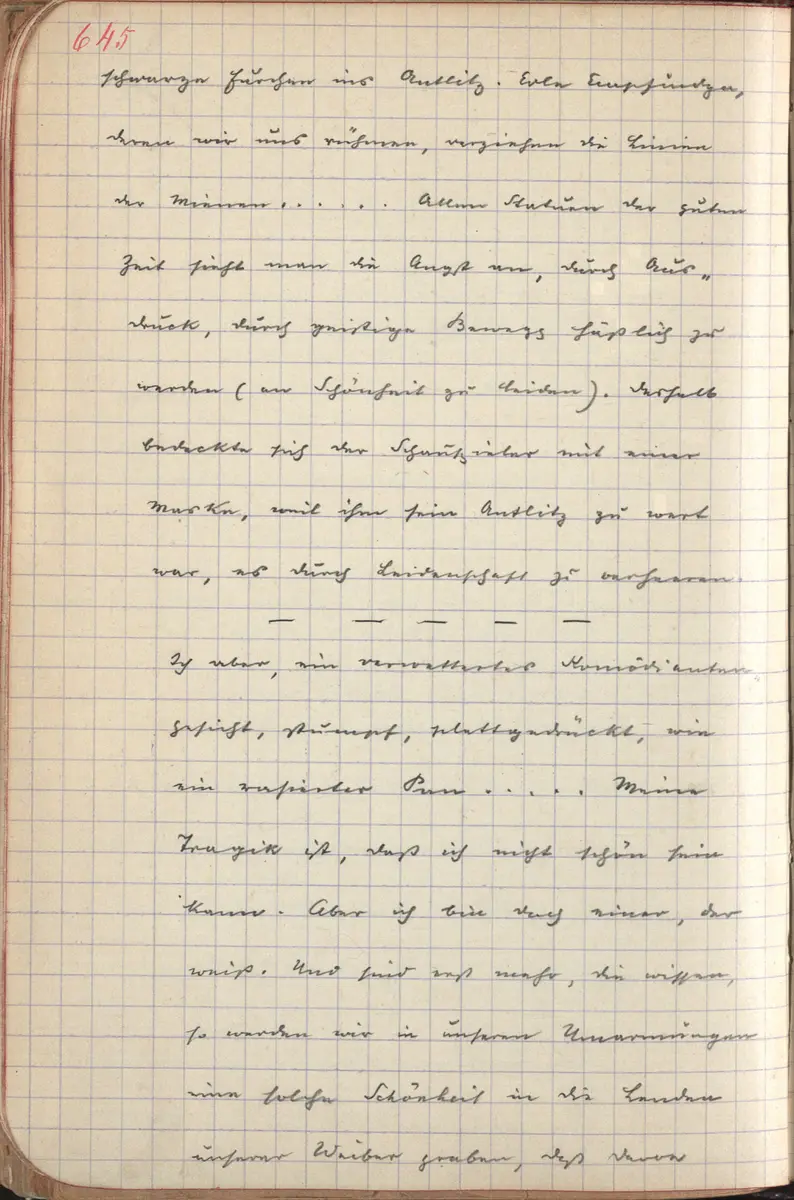 645
schwarze Furchen ins Antlitz. Edle Empfindgn,
deren wir uns rühmen, verziehen die Linien
der Mienen . . . . . . Allen Statuen der guten
Zeit sieht man die Angst an, durch Aus„
druck, durch geistige Bewegg häßlich zu
werden (an Schönheit zu leiden). Deshalb
bedeckte sich der Schauspieler mit einer
Maske, weil ihm sein Antlitz zu wert
war, es durch Leidenschaft zu verheeren.
— — — — —
Ich aber, ein verwettertes Komödianten„
gesicht, stumpf, plattgedrückt, wie
ein rasierter Pan . . . . . Meine
Tragik ist, daß ich nicht schön sein
kann. Aber ich bin doch einer, der
weiß. Und sind erst mehr, die wissen,
so werden wir in unseren Umarmungen
eine solche Schönheit in die Lenden
unserer Weiber graben, daß deren